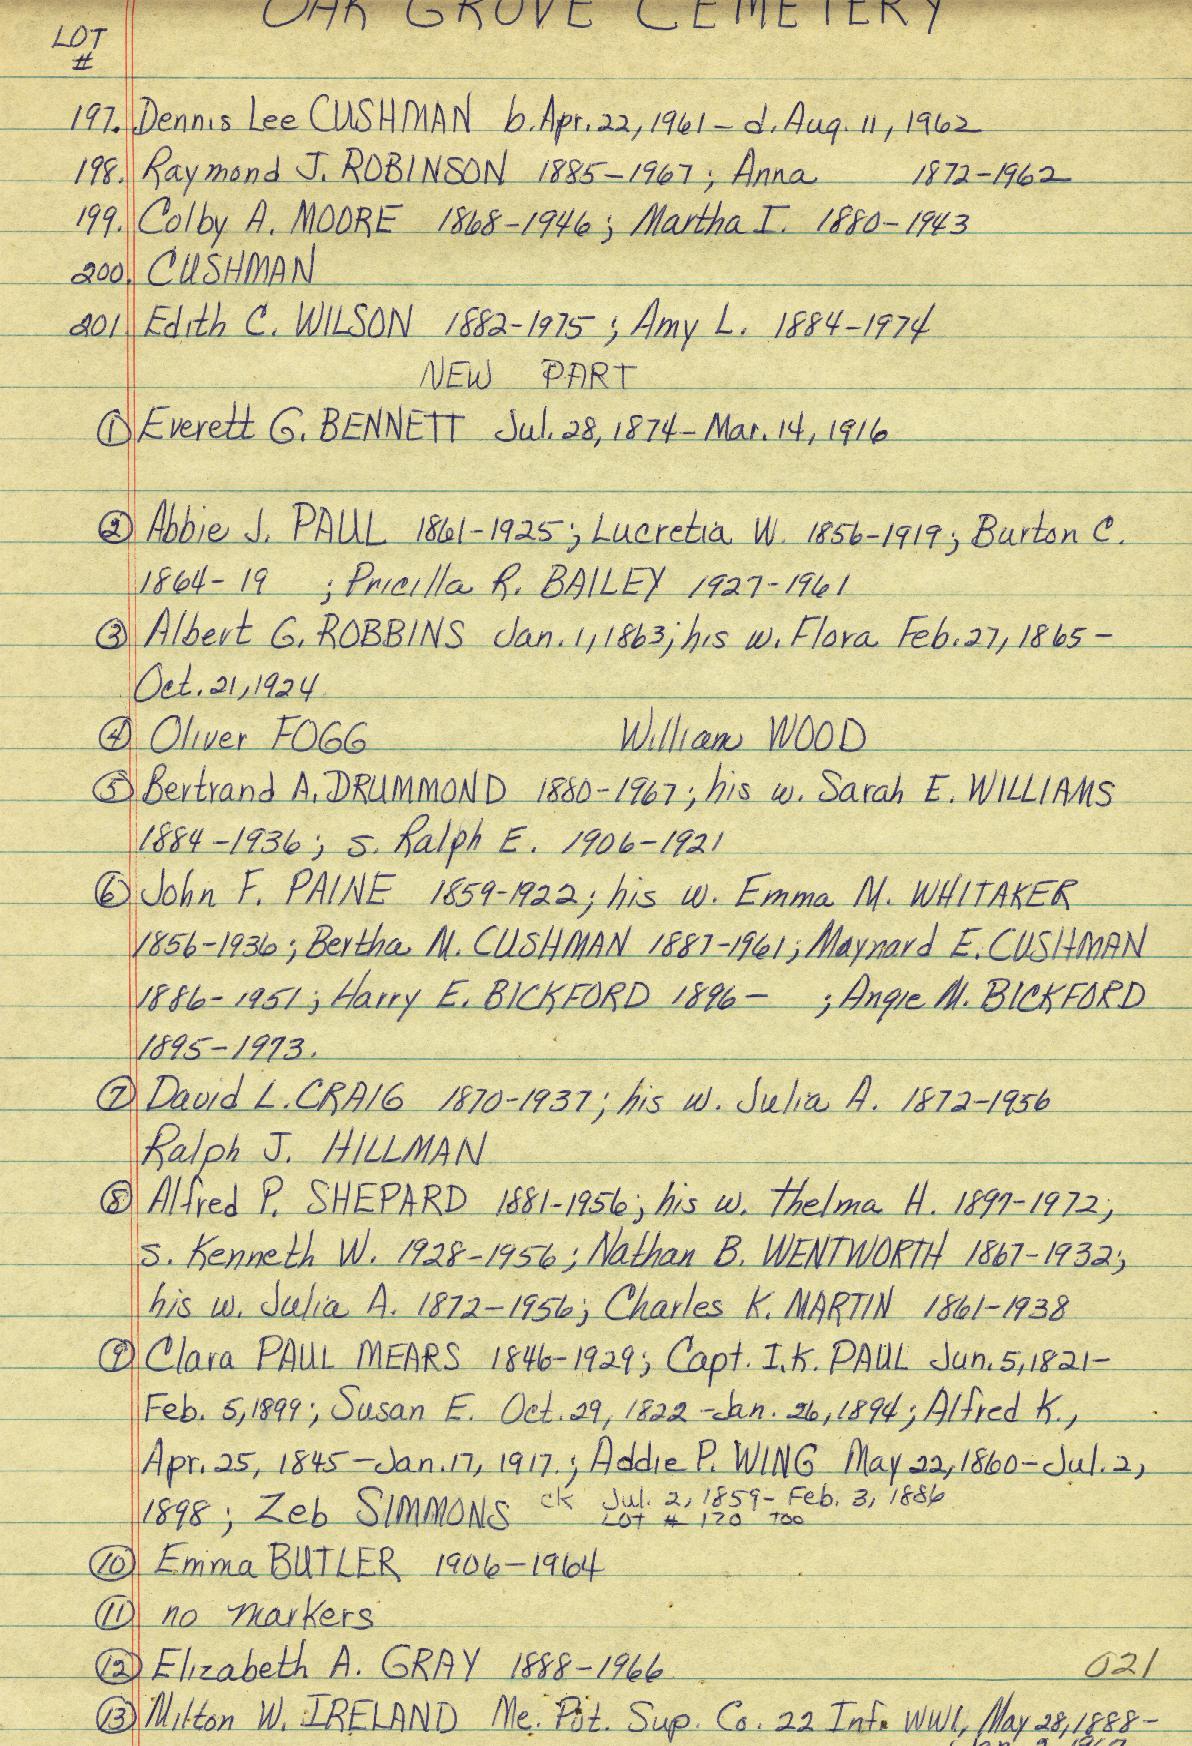 OAK GROVE CEMETERY
LOT
#
197. Dennis Lee CUSHMAN b. Apr. 22, 1961 - d. Aug. 11, 1962
198. Raymond J. ROBINSON 1885-1967; Anna 1872-1962
199. Colby A. MOORE 1868-1946; Martha I. 1880-1943
200. CUSHMAN
201. Edith C. WILSON 1882-1975; Amy L. 1884-1974
NEW PART
1 Everett G. BENNETT Jul. 28, 1874 - Mar. 14, 1916
2 Abbie J. PAUL 1861-1925; Lucretia W. 1856-1919; Burton C.
1864-19 ; Pricilla R. BAILEY 1927-1961
3 Albert G. ROBBINS Jan. 1, 1863; his w. Flora Feb. 27, 1865-
Oct. 21, 1924
4 Oliver FOGG William WOOD
5 Bertrand A. DRUMMOND 1880-1967; his w. Sarah E. WILLIAMS
1884-1936; s. Ralph E. 1906-1921
6 John F. PAINE 1859-1922; his w. Emma M. WHITAKER
1856-1936; Bertha M. CUSHMAN 1887-1961; Maynard E. CUSHMAN
1886-1951; Harry E. BICKFORD 1896- ; Angie M. BICKFORD
1895-1973.
7 David L. CRAIG 1870-1937; his w. Julia A. 1872-1956
Ralph J. HILLMAN
8 Alfred P. SHEPARD 1881-1956; his w. Thelma H. 1897-1972;
s. Kenneth W. 1928-1956; Nathan B. WENTWORTH 1867-1932;
his w. Julia A. 1872-1956; Charles K. MARTIN 1861-1938
9 Clara PAUL MEARS 1846-1929; Capt. I.K. PAUL Jun. 5, 1821-
Feb. 5, 1899; Susan E. Oct. 29, 1822 - Jan. 26, 1894; Alfred K.,
Apr. 25, 1845 - Jan. 17, 1917.; Addie P. WING May 22, 1860 - Jul. 2,
1898; Zeb SIMMONS ck Jul. 2, 1859 - Feb. 3, 1886
LOT # 170 TOO
10 Emma BUTLER 1906-1964
11 no markers
12 Elizabeth A. GRAY 1888-1966
021
13 Milton W. IRELAND Me. Pvt. Sup. Co. 22 Inf. WWI, May 28, 1888-